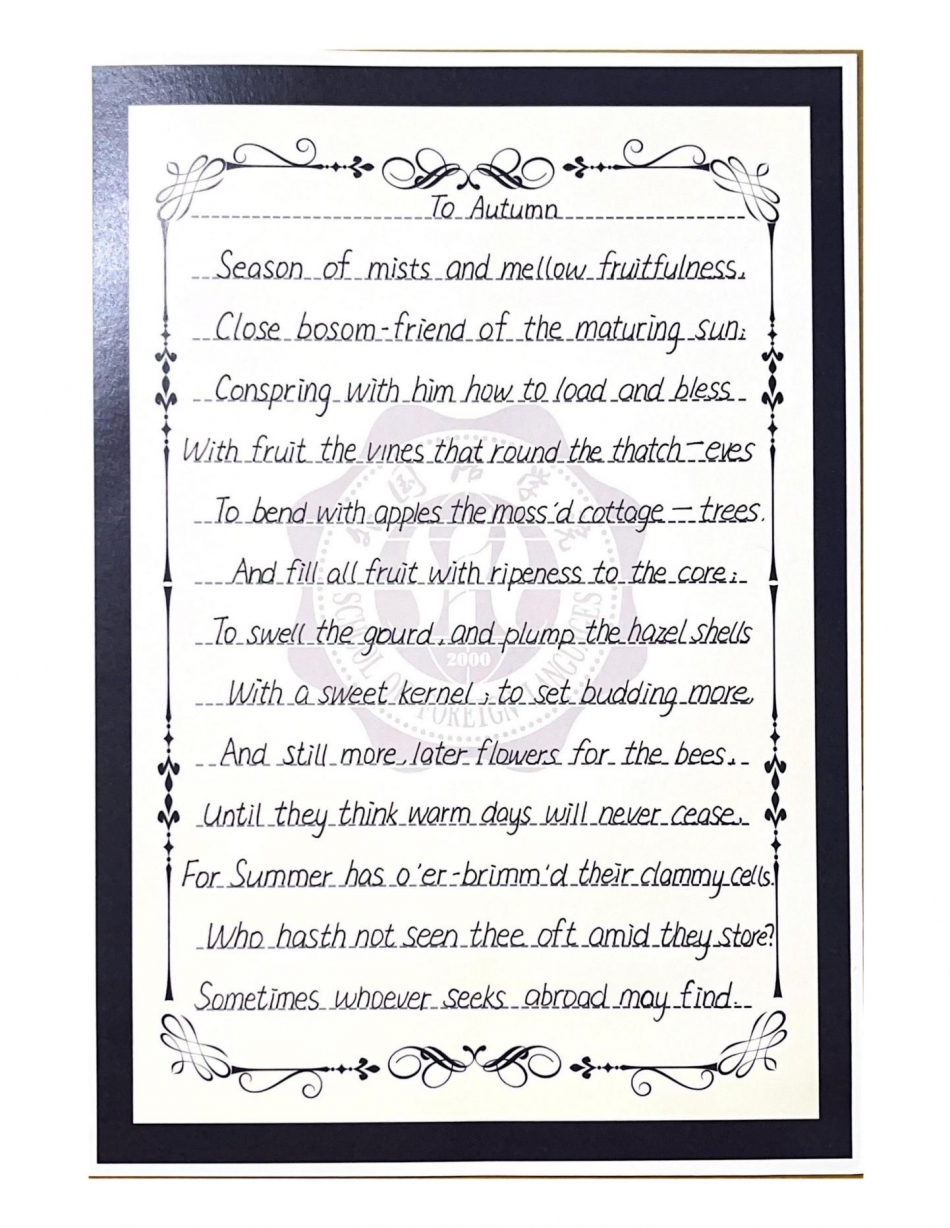 To Autumn
Season of mists and mellow fruitfulness,
Close bosom-friend of the maturing sun;
Conspring with him how to load and bless
With fruit the vines that round the thatch-eves
To bend with apples the moss'd cottage-trees.
And fill all fruit with ripeness to the core;
To swell the gourd, and plump the hazel shells
SCHOOL OF FOREIGN LANGUAGES
2000
With a sweet kernel; to set budding more,
And still more, later flowers for the bees.
Until they think warm days will never cease.
For Summer has o'er-brimm'd their clammy cells.
Who hasth not seen thee oft amid they store?
Sometimes whoever seeks abroad may find.